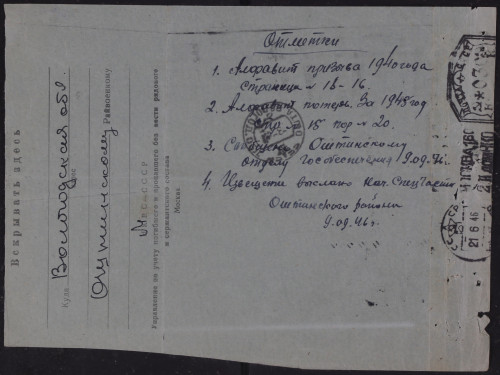 Вскрывать здесь
Куда Вологодская обл.
Оштинскому Райвоенкому
Управления по учету погибшего и пропавшего без вести рядового
и сержантского состава
Москва
Отметки
1. Алфавит призыва 1940 года
страница № 18-16.
2. Алфавит потерь. За 1945 год
стр. 15 пор № 20.
3. Сообщено Оштинскому
отделу Гособеспечения 9.09.46.
4. Извещение выслано Нач. Спец. Части
Оштинского района
9.09.46г.
21 6 46